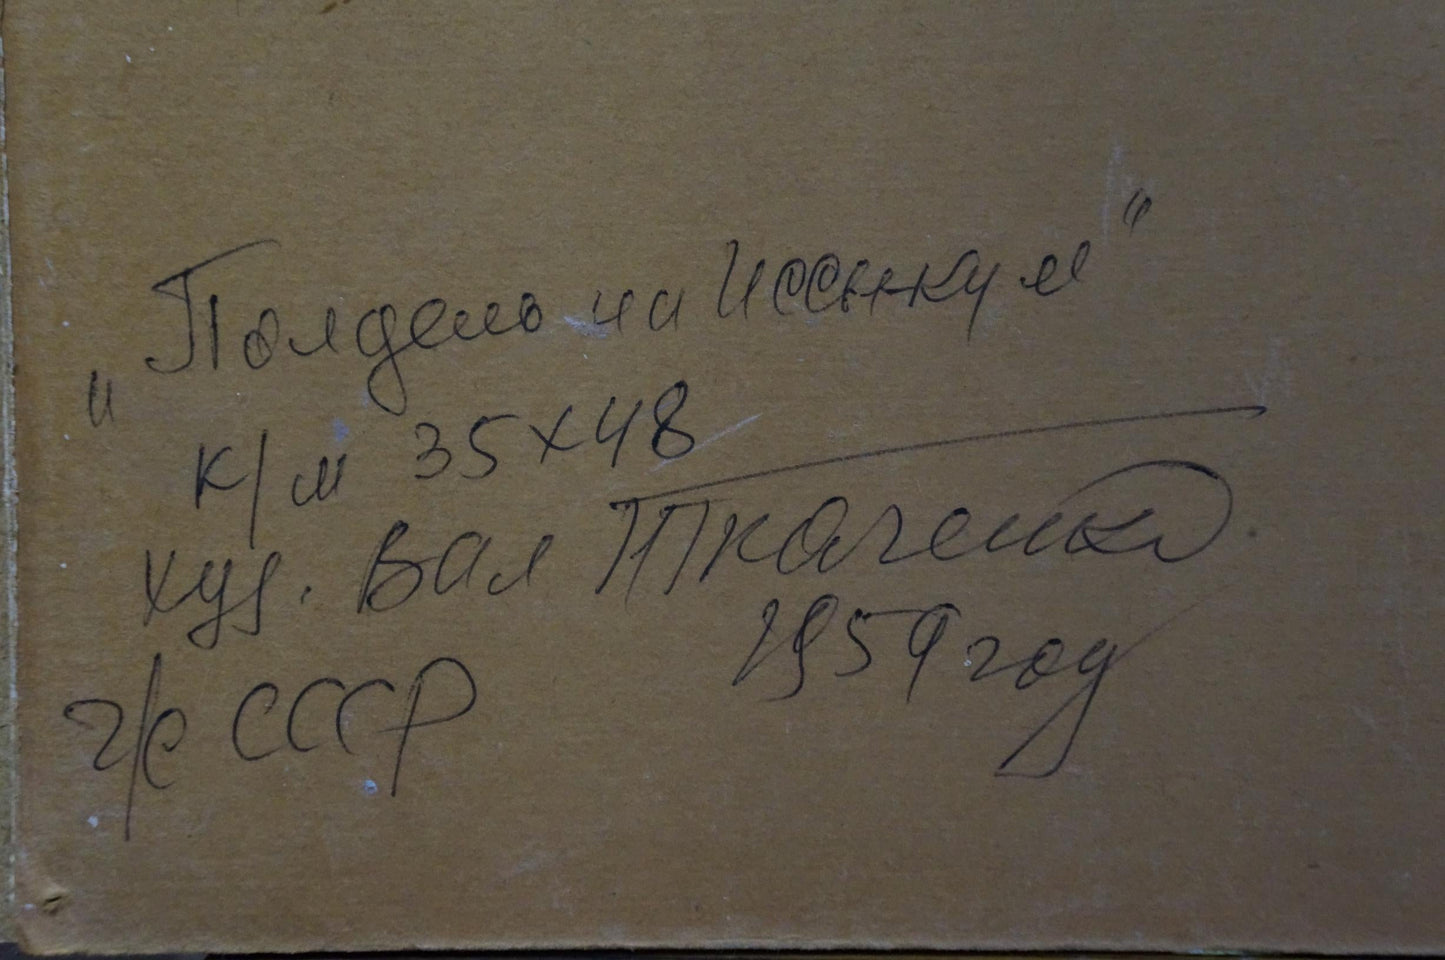 „Полдень на Иссыккуле"
к/м 35х48
худ. Вал Ткаченко
1959 год
г/с СССР